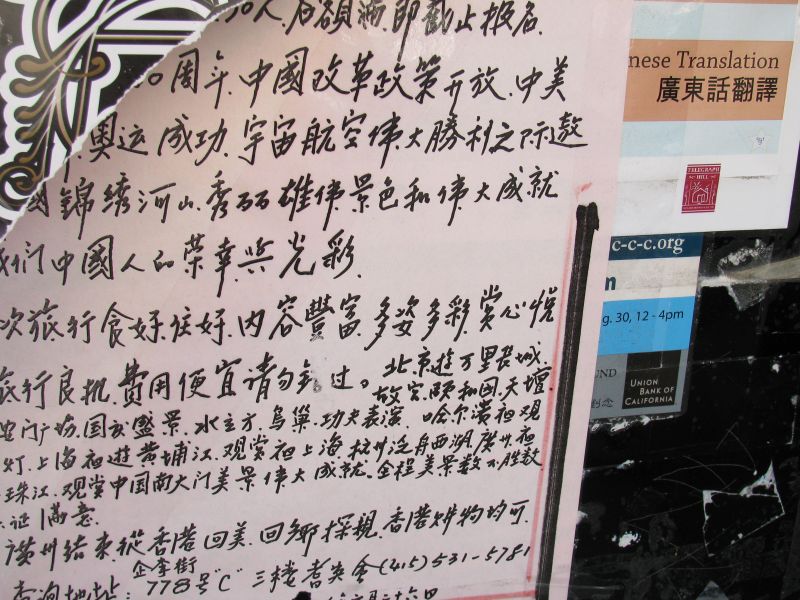 30人.名額滿.即截止报名.
0周年.中國改革政策开放.中美
奥运成功.宇宙航空伟大勝利之际.遊
國錦绣河山.秀丽雄伟景色和伟大成就
我们中國人的荣幸與光彩.
次旅行食好.住好.内容豐富.多姿多彩.赏心悦
旅行良机.费用便宜请勿錯过。
北京遊万里長城.
故宫.颐和园.天壇.
安门广场.国家盛景.水立方.鸟巢.功夫表演.哈尔濱夜观
灯.上海夜遊黄埔江.观赏夜上海.杭州泛舟西湖.廣州夜
珠江.观赏中国南大门美景伟大成就.全程美景数不胜数
证满意.
廣州结束從香港回美.回鄉探親.香港购物均可.
查询地址:
企李街
778号"C"三楼耆英会(415)531-5781
nese Translation
廣東話翻譯
TELEGRAPH
HILL
c-c-c.org
n
g. 30, 12 - 4pm
UND
UNION
BANK OF
CALIFORNIA
念